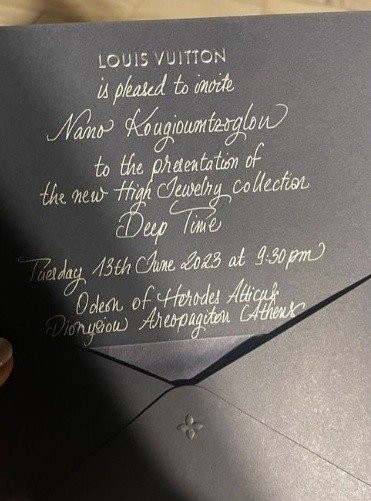 LOUIS VUITTON
is pleased to invite
Nano Kougioumtzoglou
to the presentation of
the new High Jewelry collection
Deep Time
Tuesday 13th June 2023 at 9:30pm
Odeon of Herodes Atticus
Dionysiou Areopagitou Athens